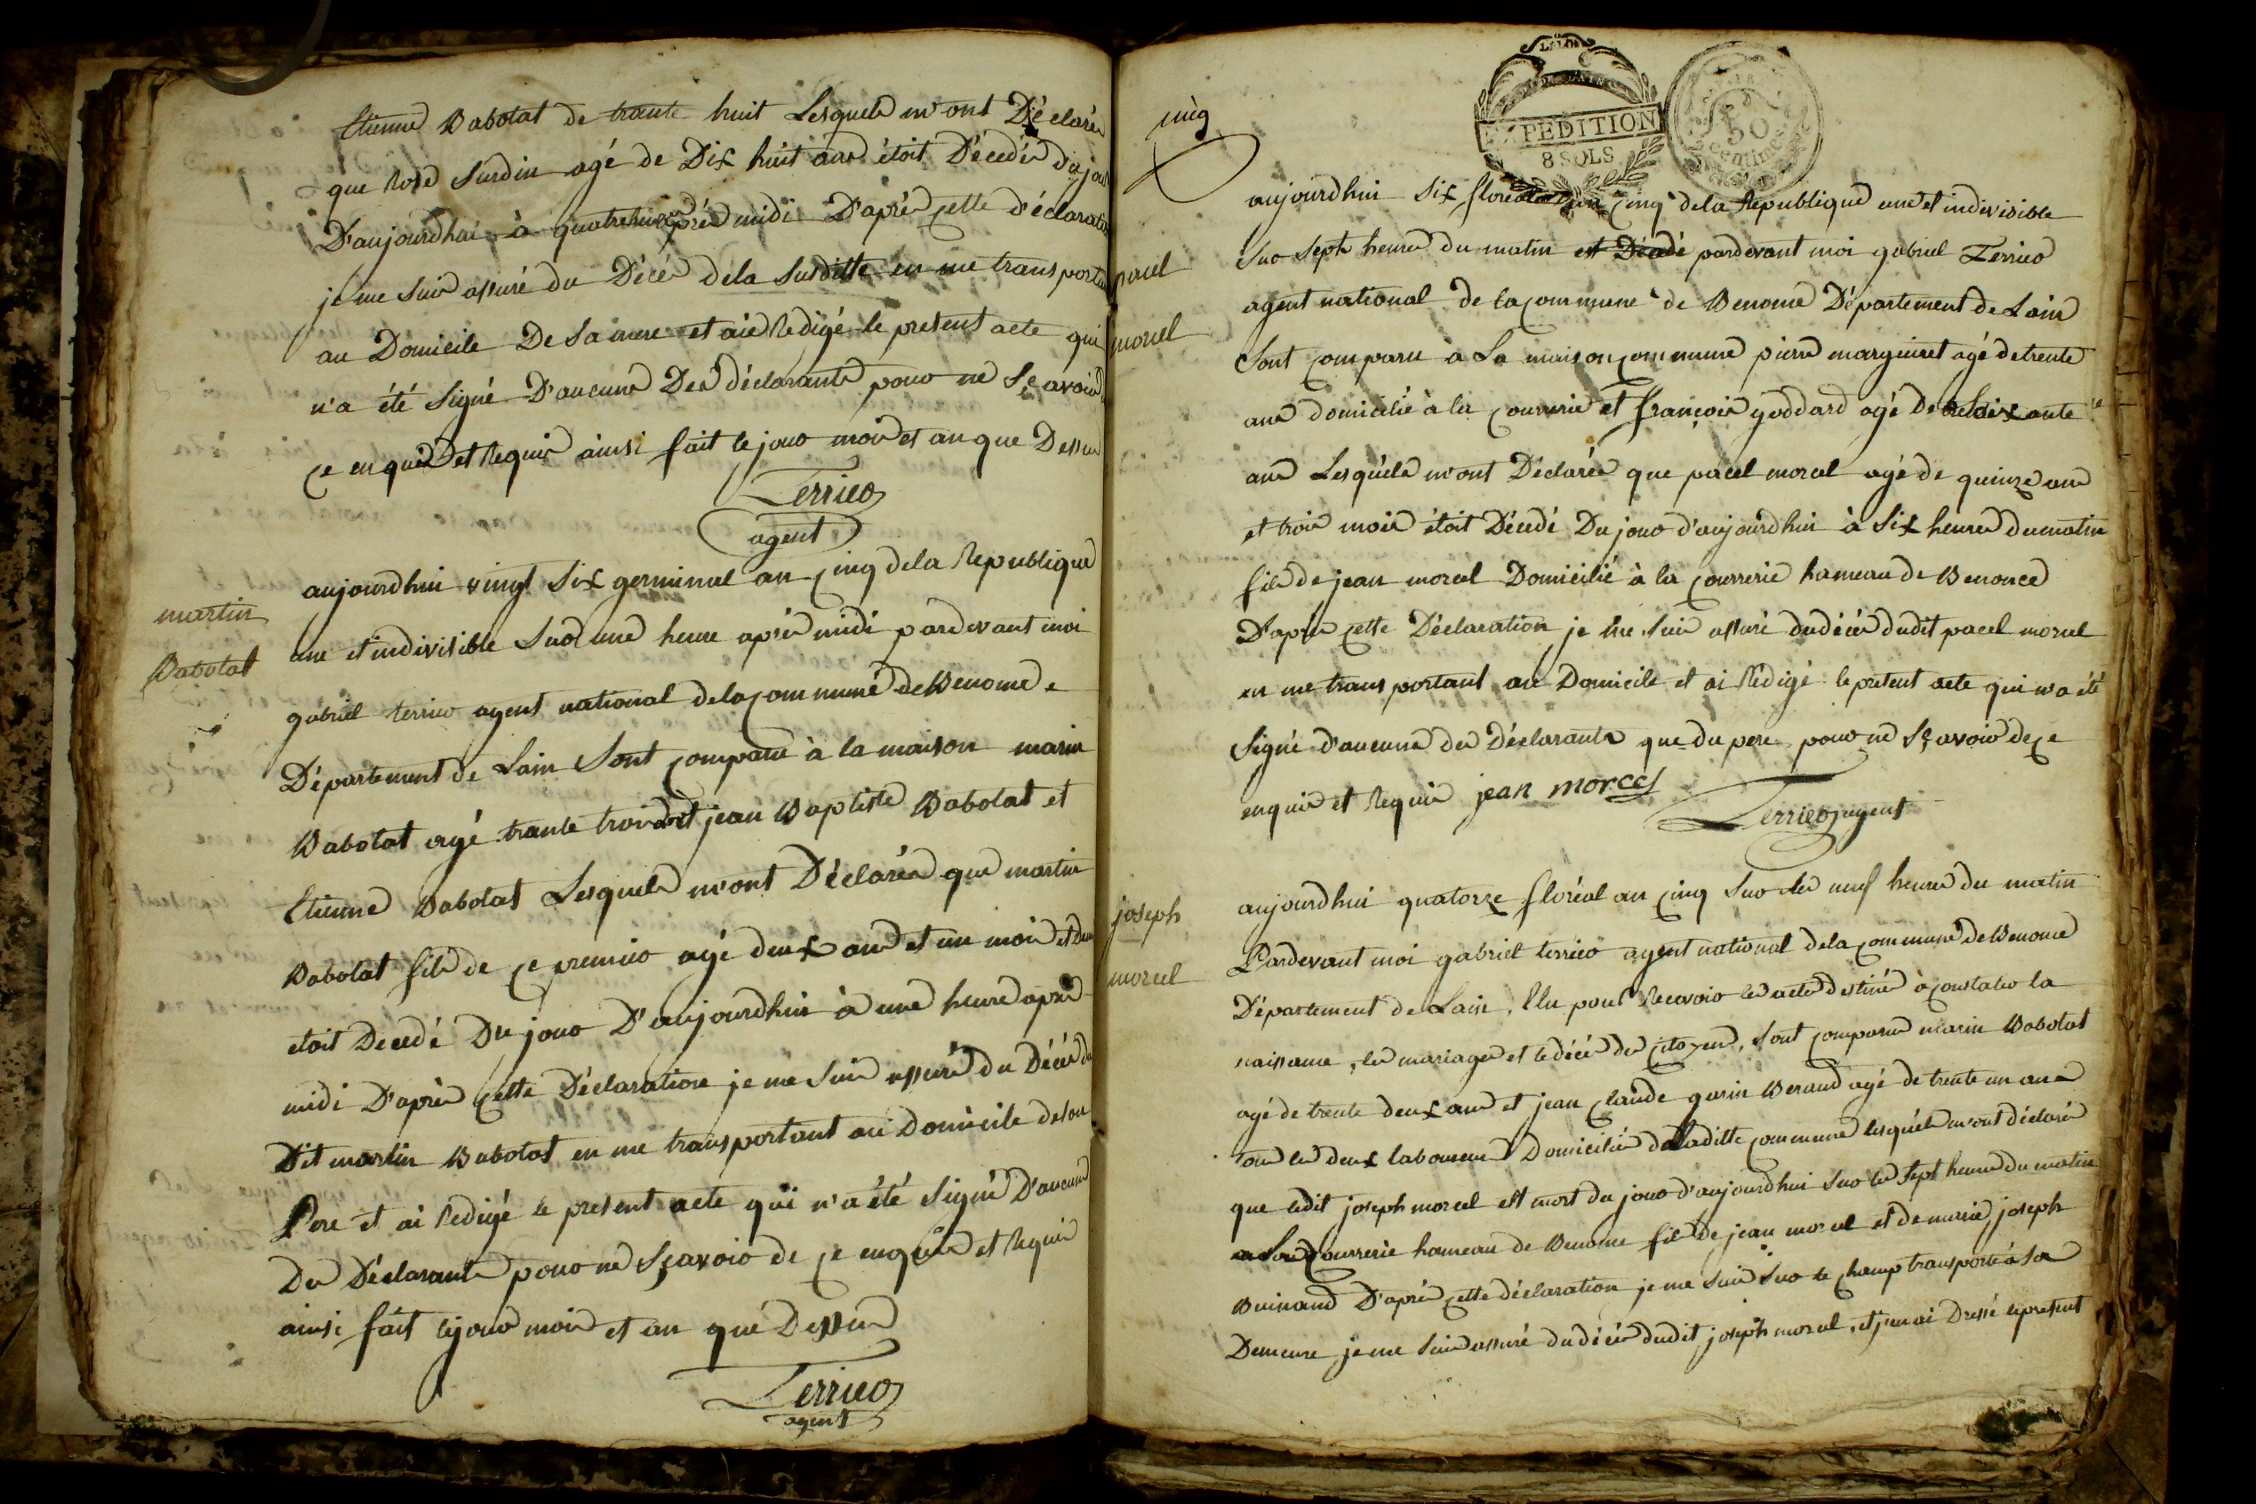 Etienne Babolat de trante huit Lesquels m'ont Déclarés
que Rose Surdin agé de Dix huit ans étoit Décedés du jour
D'aujourdhui à quatre heures après midi D'après cette déclaration
je me suis assuré du Décès de la Susditte en me transportant
au Domicile De sa mere et aie Redigé le present acte qui
n'a été Signé D'aucuns Des déclarants pour ne Sçavoir
ce enquis et Requis ainsi fait le jour mois et an que Dessus
Terrier
agent
martin
Babolat
aujourdhui vingt Six germinal an cinq de la Republique
une et indivisible Sur une heure après midi pardevant moi
gabriel terrier agent national de la commune de Benonce
Département de Lain Sont comparu à la maison marin
Babolat agé trante trois et jean Baptiste Babolat et
Etienne Babolat Lesquels m'ont Déclarés que martin
Babolat fils de ce premier agé deux ans et un mois et
etoit Decedé Du jour D'aujourdhui à une heure après
midi D'après cette Déclaration je me suis assuré du Décès du
Dit martin Babolat en me transportant au Domicile de son
Pere et ai Redigé le present acte qui n'a été Signé D'aucuns
Des Déclarants pour ne Sçavoir de ce enquis et Requis
ainsi fait le jour mois et an que Dessus
Terrier
agent
cinq
LA LOI
EXPEDITION
8 SOLS
50
centimes
pacel
morel
aujourdhui Six floréal an cinq de la Republique une et indivisible
Sur Septs heures du matin est Décedé pardevant moi gabriel Terrier
agent national de la commune de Benonce Département de Lain
Sont comparu à La maison commune pierre marguiret agé de trente
ans domicilié à la courrerie et françois goddard agé De Soixante
ans Lesquels m'ont Déclarés que pacel morel agé de quinze ans
et trois mois étoit Décedé Du jour d'aujourdhui à Six heures du matin
fils de jean morel Domicilié à la courrerie hameau de Benonce
D'après cette Déclaration je me suis assuré du décès dudit pacel morel
en me transportant au Domicile et ai Rédigé le present acte qui n'a été
Signé d'aucuns des Déclarants que du pere pour ne Sçavoir de ce
enquis et Requis jean morel
Terrier agent
joseph
morel
aujourdhui quatorze floréal an cinq Sur les neuf heures du matin
Pardevant moi gabriel terrier agent national de la commune de Benonce
Département de Lain, Elu pour Recevoir les actes destinés à constater la
naissance, les mariages et le décès des citoyens, Sont comparus marin Babolat
agé de trente deux ans et jean claude garin Beraud agé de trente un ans
tous les deux laboureurs Domiciliés de laditte commune lesquels m'ont déclaré
que ledit joseph morel est mort du jour d'aujourdhui sur les sept heures du matin
a la courrerie hameau de Benonce fils de jean morel et de marie joseph
Buinand D'après cette déclaration je me suis sur le champ transporté à sa
Demeure je me suis assuré du décès dudit joseph morel, et j'en ai Dressé le present